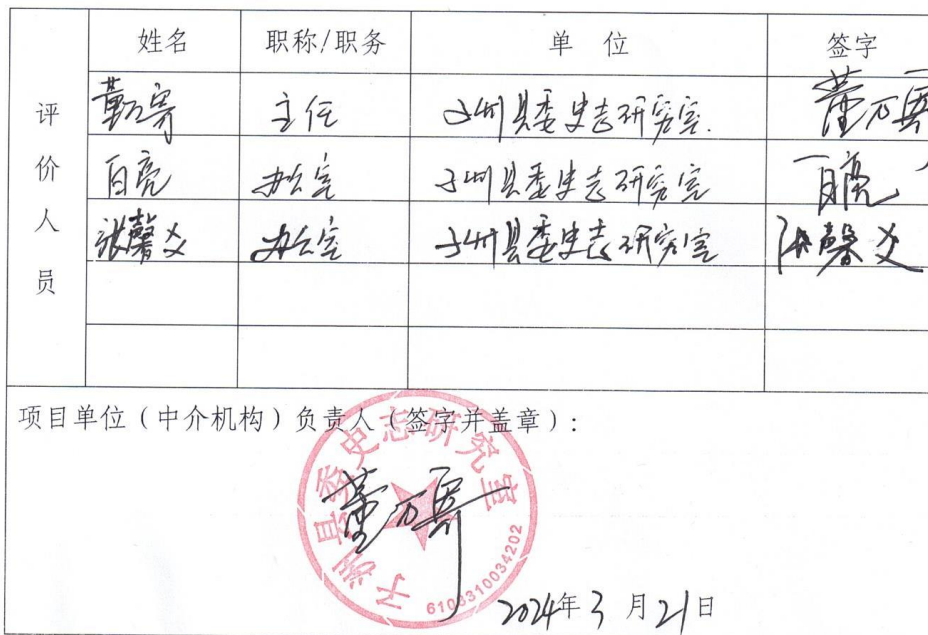 姓名 职称/职务 单 位 签字
评价人员
董万寡 主任 子洲县委史志研究室. 董万寡
白亮 办公室 子洲县委史志研究室 白亮
张馨文 办公室 子洲县委史志研究室 张馨文
项目单位(中介机构)负责人(签字并盖章):
子洲县委史志研究室
董万寡
6108310034202
2024年3月21日